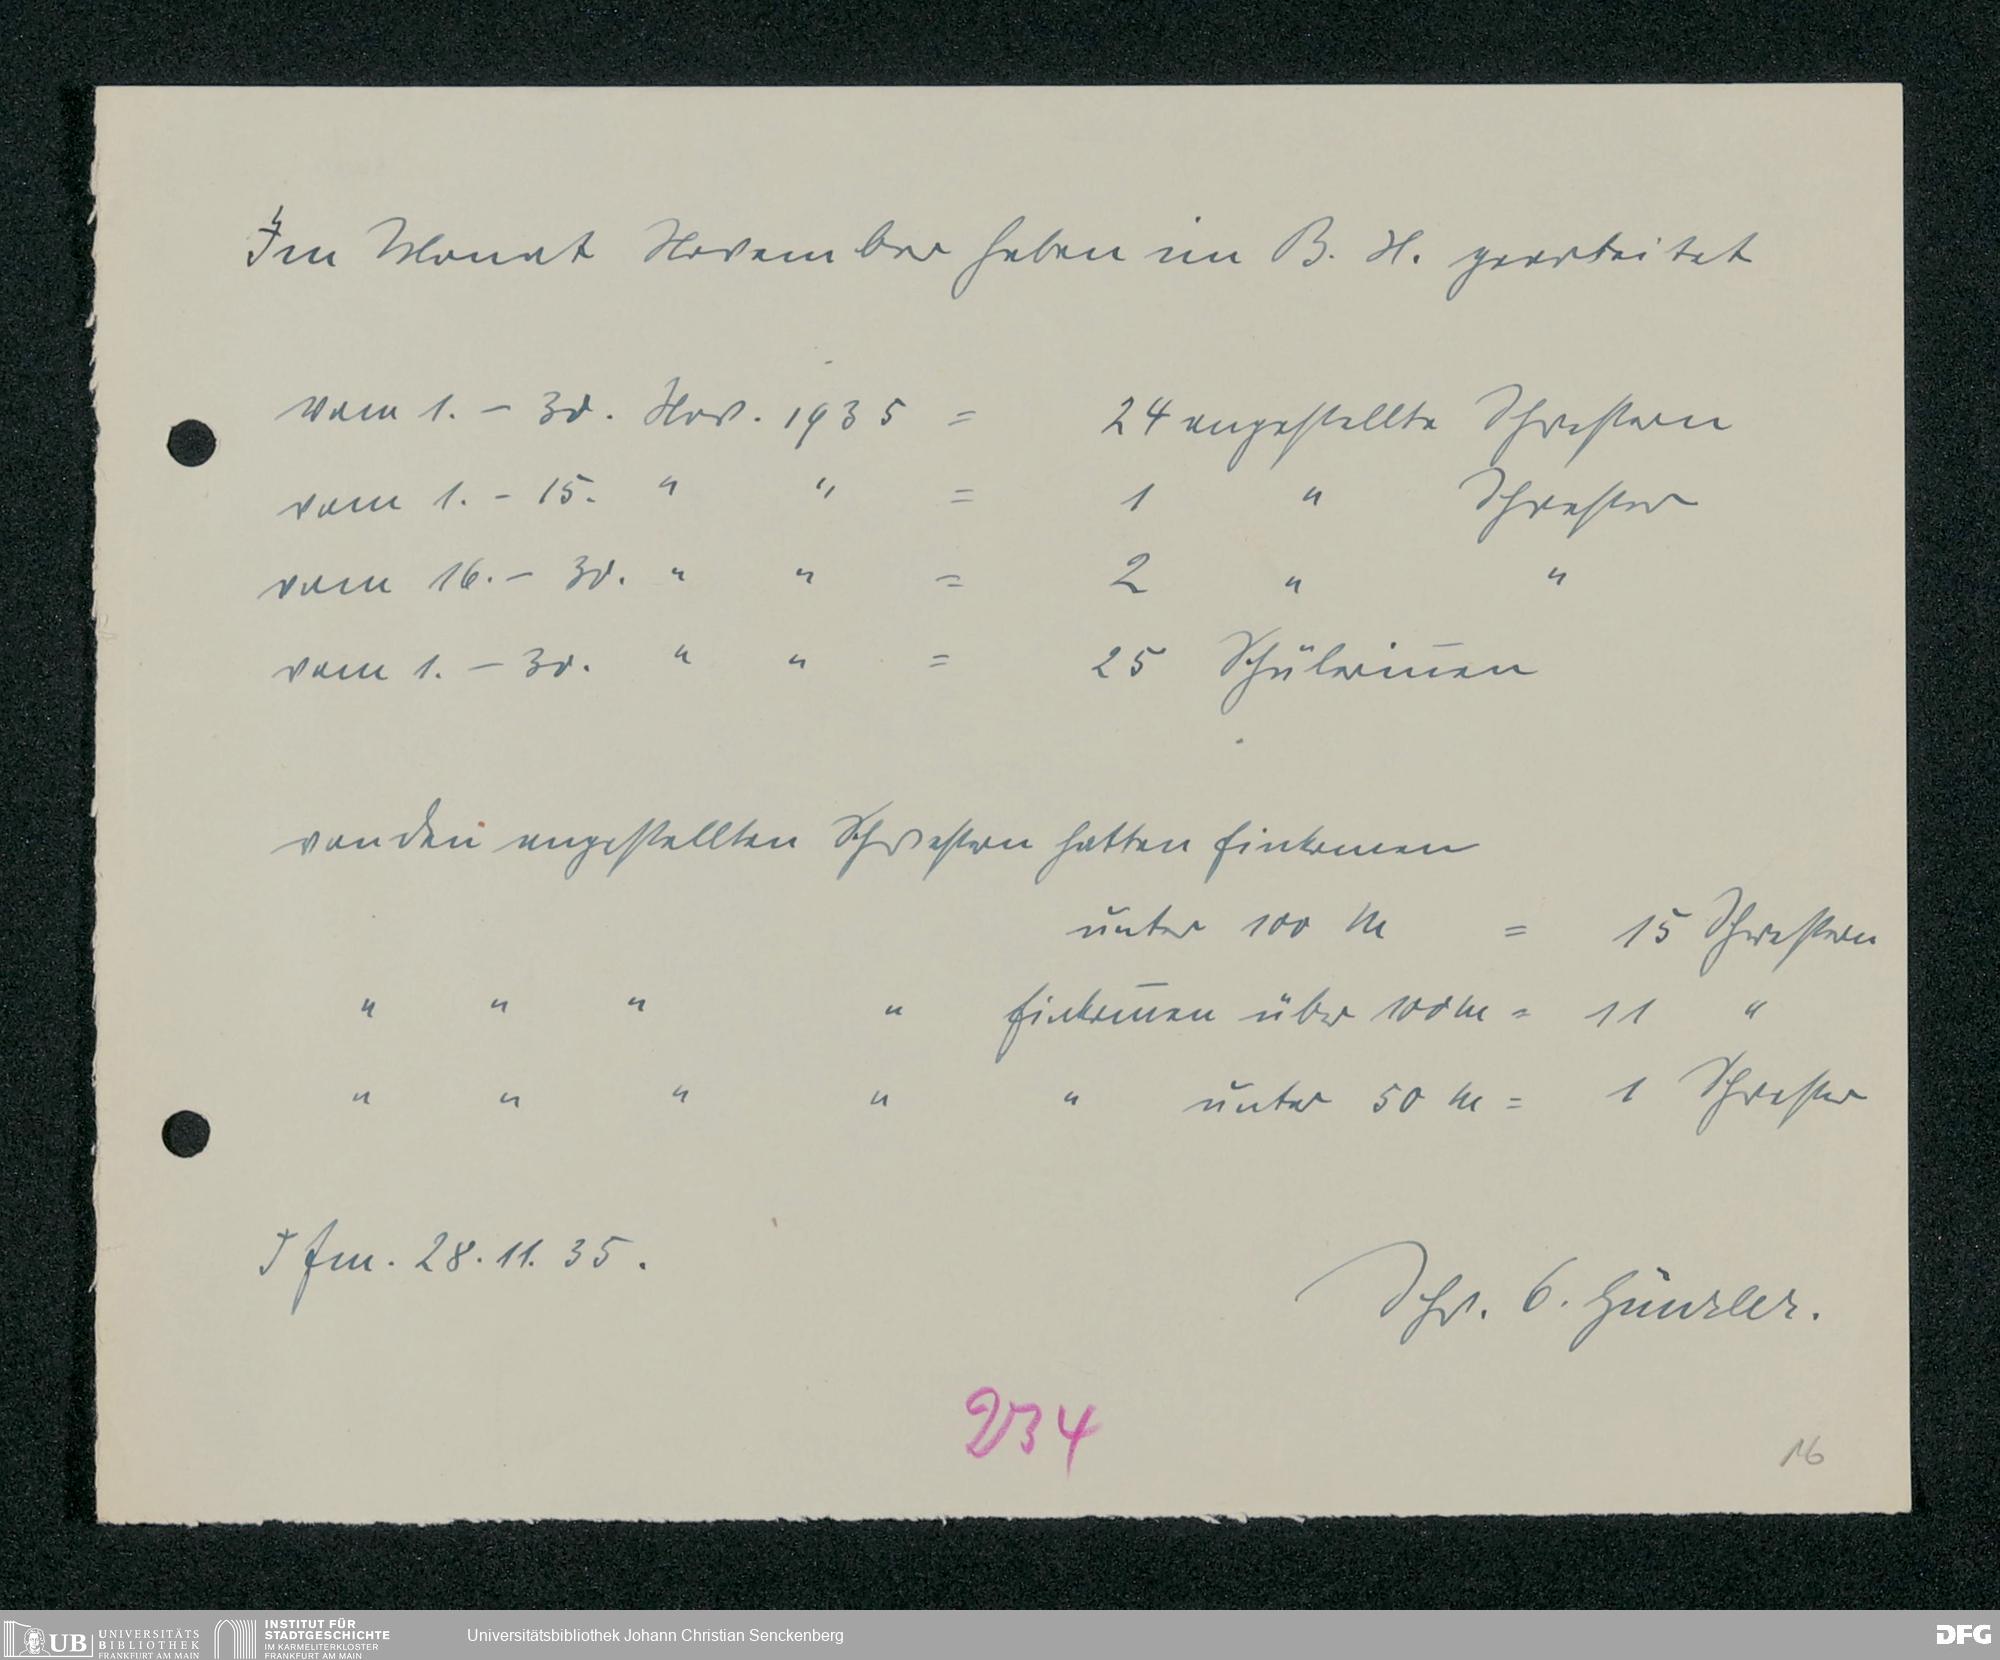 Im Monat November haben im B. H. gearbeitet
vom 1. – 30. Nov. 1935 = 24 angestellte Schwestern
vom 1. – 15. " " = 1 " Schwester
vom 16. – 30. " " = 2 " "
vom 1. – 30. " " = 25 Schülerin̄en
von den angestellten Schwestern hatten Einkomen
unter 100 M = 15 Schwestern
" " " " Einkom̄en über 100 M = 11 "
" " " " " unter 50 M = 1 Schwester
Ffm. 28. 11. 35.
Schw. C. Günzler.
234
16
UB UNIVERSITÄTS BIBLIOTHEK FRANKFURT AM MAIN
INSTITUT FÜR STADTGESCHICHTE IM KARMELITERKLOSTER FRANKFURT AM MAIN
Universitätsbibliothek Johann Christian Senckenberg
DFG